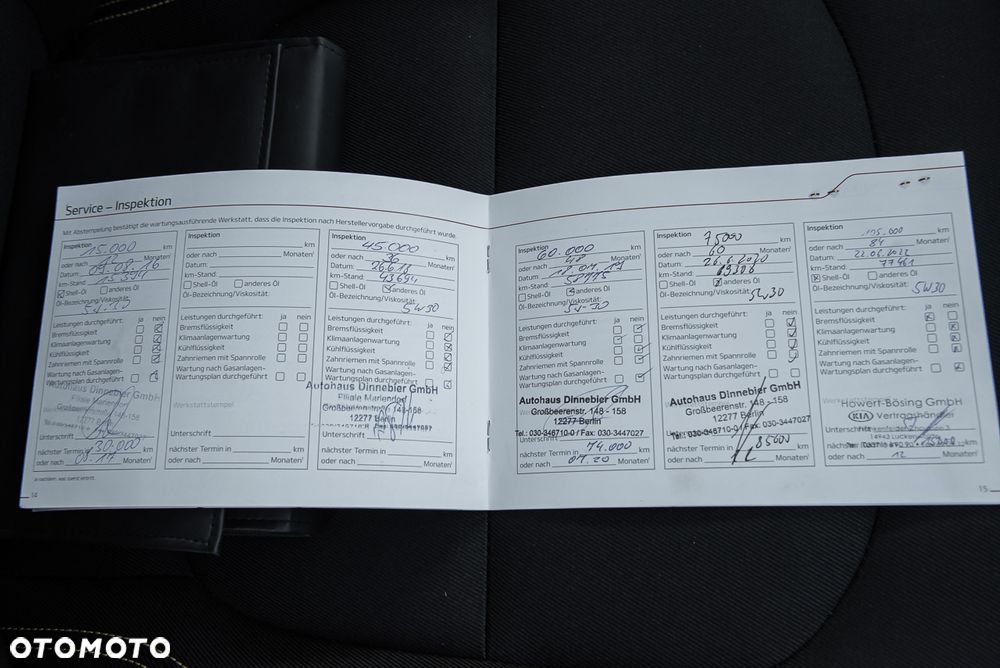 Service – Inspektion
Mit Abstempelung bestätigt die wartungsausführende Werkstatt, dass die Inspektion nach Herstellervorgabe durchgeführt wurde.
Inspektion
15.000 km
oder nach 12 Monaten¹
Datum: 09.08.16
km-Stand:
Shell-Öl anderes Öl
Öl-Bezeichnung/Viskosität:
Leistungen durchgeführt: ja nein
Bremsflüssigkeit
Klimaanlagenwartung
Kühlflüssigkeit
Zahnriemen mit Spannrolle
Wartung nach Gasanlagen-
Wartungsplan durchgeführt
Autohaus Dinnebier GmbH
Filiale Mariendorf
12277 Berlin
Unterschrift
nächster Termin in 30.000 km
oder nach 08.17 Monaten¹
Inspektion
km
oder nach Monaten¹
Datum:
km-Stand:
Shell-Öl anderes Öl
Öl-Bezeichnung/Viskosität:
Leistungen durchgeführt: ja nein
Bremsflüssigkeit
Klimaanlagenwartung
Kühlflüssigkeit
Zahnriemen mit Spannrolle
Wartung nach Gasanlagen-
Wartungsplan durchgeführt
Werkstattstempel
Unterschrift
nächster Termin in km
oder nach Monaten¹
Inspektion
45.000 km
oder nach 36 Monaten¹
Datum: 26.6.18
km-Stand: 43694
Shell-Öl anderes Öl
Öl-Bezeichnung/Viskosität:
5W30
Leistungen durchgeführt: ja nein
Bremsflüssigkeit
Klimaanlagenwartung
Kühlflüssigkeit
Zahnriemen mit Spannrolle
Wartung nach Gasanlagen-
Wartungsplan durchgeführt
Autohaus Dinnebier GmbH
Filiale Mariendorf
Großbeerenstr. 148-158
12277 Berlin
Unterschrift
nächster Termin in km
oder nach Monaten¹
14
Inspektion
60.000 km
oder nach 48 Monaten¹
Datum:
km-Stand:
Shell-Öl anderes Öl
Öl-Bezeichnung/Viskosität:
5W-30
Leistungen durchgeführt: ja nein
Bremsflüssigkeit
Klimaanlagenwartung
Kühlflüssigkeit
Zahnriemen mit Spannrolle
Wartung nach Gasanlagen-
Wartungsplan durchgeführt
Autohaus Dinnebier GmbH
Großbeerenstr. 148 - 158
12277 Berlin
Tel.: 030-346710-0 / Fax: 030-3447027
Unterschrift
nächster Termin in 74.000 km
oder nach 04.20 Monaten¹
Inspektion
75000 km
oder nach 60 Monaten¹
Datum: 26.6.2020
km-Stand: 69306
Shell-Öl anderes Öl
Öl-Bezeichnung/Viskosität:
5W30
Leistungen durchgeführt: ja nein
Bremsflüssigkeit
Klimaanlagenwartung
Kühlflüssigkeit
Zahnriemen mit Spannrolle
Wartung nach Gasanlagen-
Wartungsplan durchgeführt
Autohaus Dinnebier GmbH
Großbeerenstr. 148 - 158
12277 Berlin
Tel.: 030-346710-0 / Fax: 030-3447027
Unterschrift
nächster Termin in 85000 km
oder nach 12 Monaten¹
Inspektion
105.000 km
oder nach 84 Monaten¹
Datum: 22.06.2022
km-Stand: 77461
Shell-Öl anderes Öl
Öl-Bezeichnung/Viskosität:
5W30
Leistungen durchgeführt: ja nein
Bremsflüssigkeit
Klimaanlagenwartung
Kühlflüssigkeit
Zahnriemen mit Spannrolle
Wartung nach Gasanlagen-
Wartungsplan durchgeführt
Howert-Bösing GmbH
KIA Vertragshändler
Unterschrift
nächster Termin in km
oder nach 12 Monaten¹
15
OTOMOTO